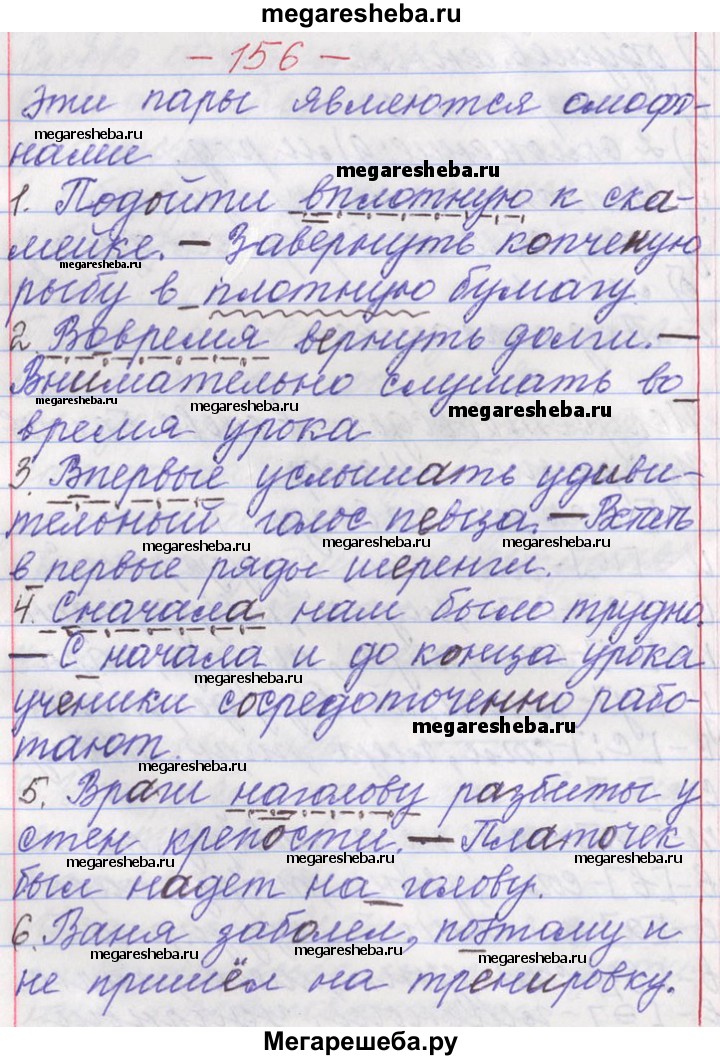 megaresheba.ru
- 156 -
Эти пары являются омофо-
megaresheba.ru
нами
megaresheba.ru
1. Подойти вплотную к ска-
мейке. — Завернуть копченую
megaresheba.ru
рыбу в плотную бумагу.
2 Вовремя вернуть долги. —
Внимательно слушать во
megaresheba.ru megaresheba.ru megaresheba.ru
время урока
3. Впервые услышать удиви-
тельный голос певца. — Встать
megaresheba.ru megaresheba.ru
в первые ряды шеренги.
4. Сначала нам было трудно.
— С начала и до конца урока
megaresheba.ru
ученики сосредоточенно рабо-
megaresheba.ru
тают.
megaresheba.ru
5. Враги наголову разбиты у
стен крепости. — Платочек
megaresheba.ru megaresheba.ru
был надет на голову.
6. Ваня заболел, поэтому и
megaresheba.ru megaresheba.ru
не пришёл на тренировку.
Мегарешеба.ру